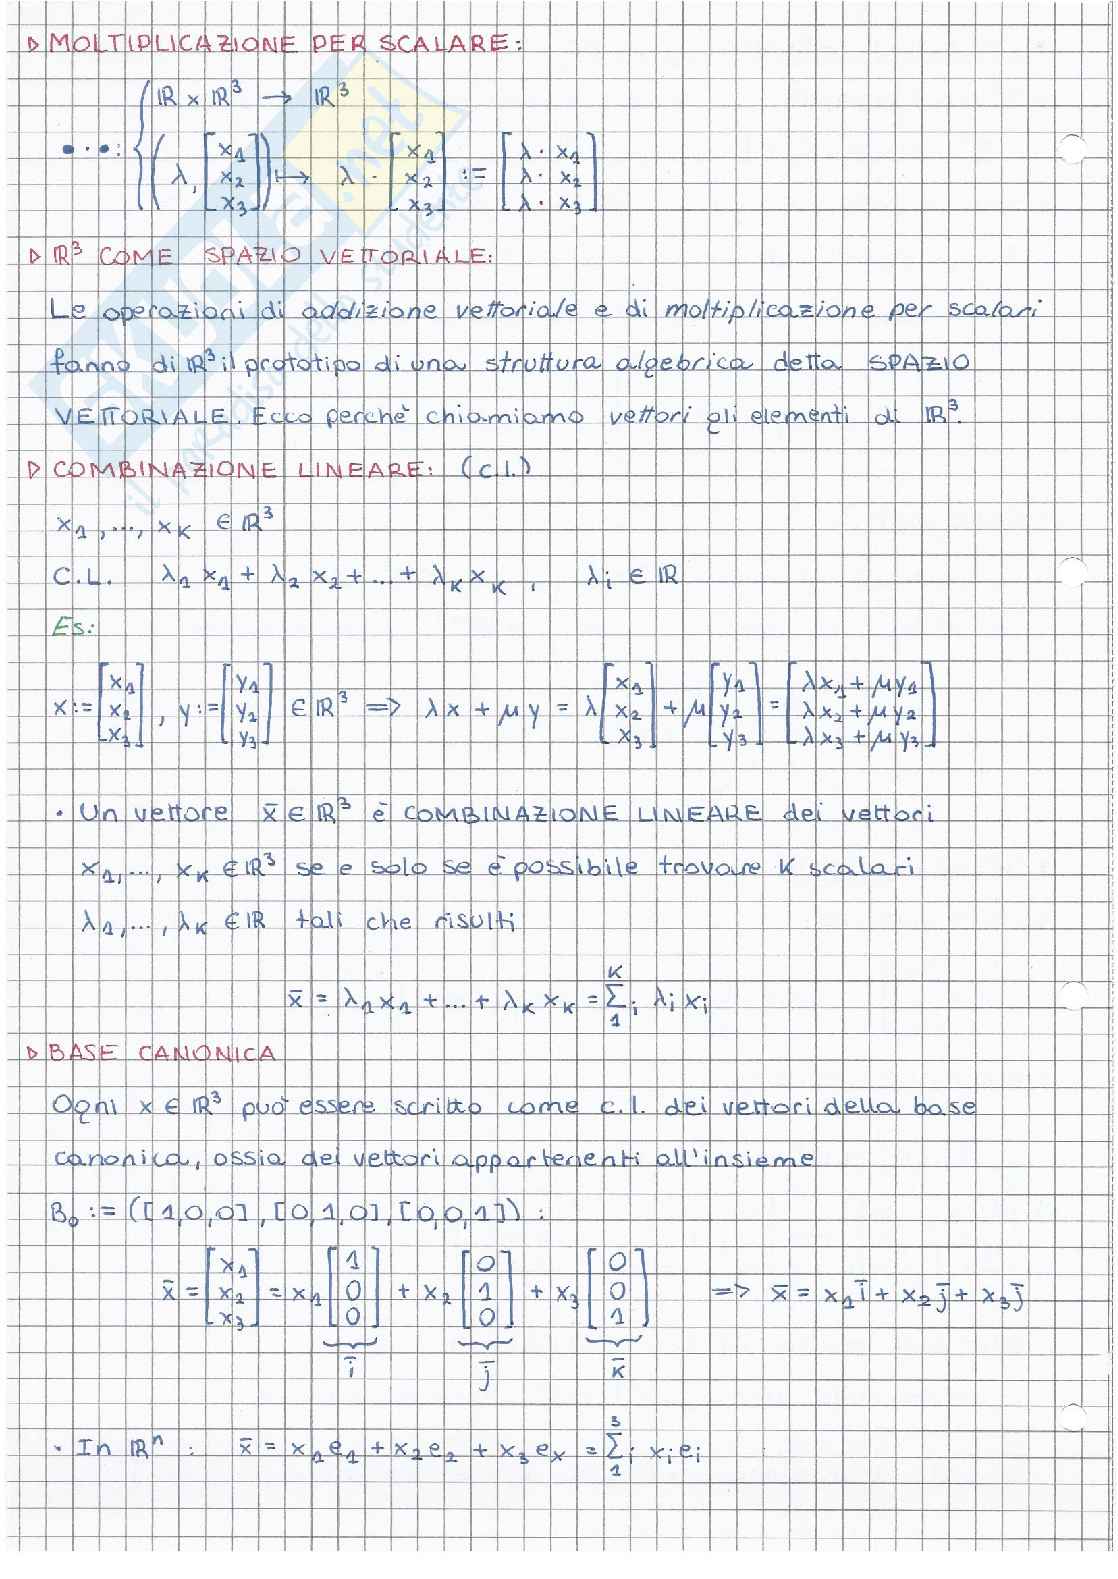 ▷ MOLTIPLICAZIONE PER SCALARE:
• · • : { ℝ × ℝ³ → ℝ³
(λ, [x₁ x₂ x₃]) ↦ λ · [x₁ x₂ x₃] := [λ · x₁ λ · x₂ λ · x₃]
▷ ℝ³ COME SPAZIO VETTORIALE:
Le operazioni di addizione vettoriale e di moltiplicazione per scalari
fanno di ℝ³ il prototipo di una struttura algebrica detta SPAZIO
VETTORIALE. Ecco perchè chiamiamo vettori gli elementi di ℝ³.
▷ COMBINAZIONE LINEARE: (c.l.)
x₁, ..., xₖ ∈ ℝ³
C.L. λ₁ x₁ + λ₂ x₂ + ... + λₖ xₖ , λᵢ ∈ ℝ
Es:
x := [x₁ x₂ x₃] , y := [y₁ y₂ y₃] ∈ ℝ³ => λx + μy = λ [x₁ x₂ x₃] + μ [y₁ y₂ y₃] = [λx₁ + μy₁ λx₂ + μy₂ λx₃ + μy₃]
· Un vettore x̄ ∈ ℝ³ è COMBINAZIONE LINEARE dei vettori
x₁, ..., xₖ ∈ ℝ³ se e solo se è possibile trovare K scalari
λ₁, ..., λₖ ∈ ℝ tali che risulti
x̄ = λ₁x₁ + ... + λₖxₖ = Σ₁ᴷᵢ λᵢ xᵢ
▷ BASE CANONICA
Ogni x ∈ ℝ³ può essere scritto come c.l. dei vettori della base
canonica, ossia dei vettori appartenenti all'insieme
B₀ := ([1,0,0], [0,1,0], [0,0,1]) :
x̄ = [x₁ x₂ x₃] = x₁ [1 0 0] + x₂ [0 1 0] + x₃ [0 0 1] => x̄ = x₁ī + x₂j̄ + x₃j̄
ī j̄ k̄
· In ℝⁿ : x̄ = x₁e₁ + x₂e₂ + x₃eₓ = Σ₁³ᵢ xᵢeᵢ
SKUOLA.net
il paradiso dello studente